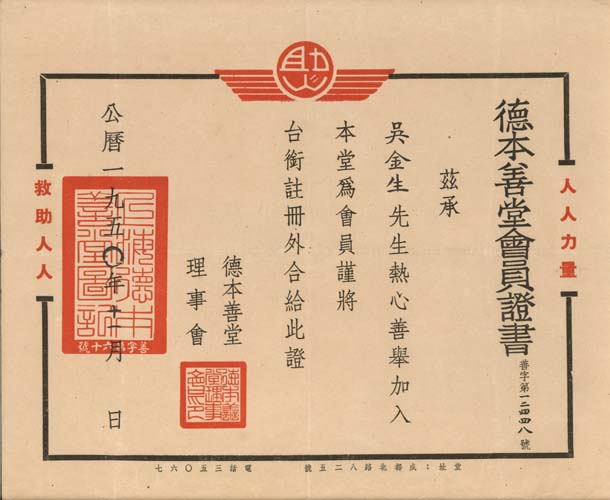 助
人人力量
德本善堂會員證書
善字第一二四四八號
茲承
吳金生先生熱心善舉加入
本堂爲會員謹將
台銜註冊外合給此證
德本善堂
理事會
上海德本善堂圖記
公曆一九五〇年十一月 日
救助人人
堂址：成都北路八二五號 電話三五〇六七